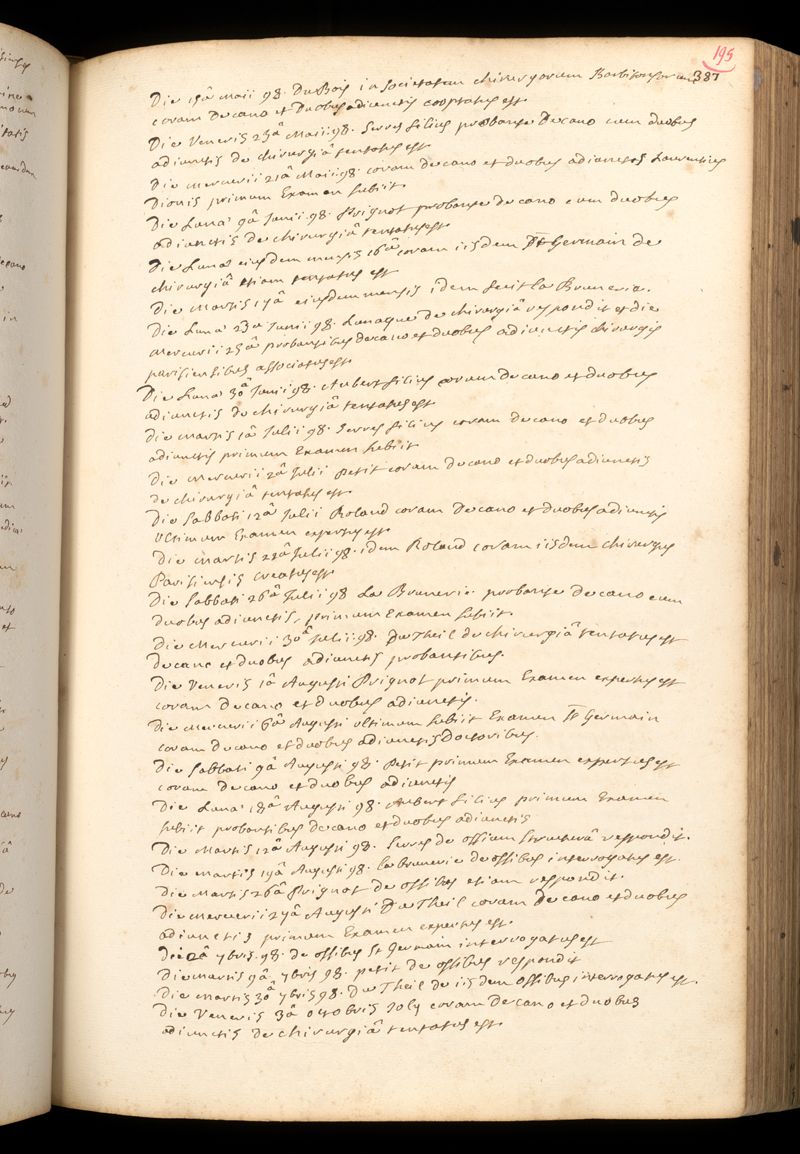 195
387
Die 15â Maii 98. DuBois in societatem chirurgorum Barbitonsorum
coram Decano et Duobus adianctis cooptatus est
Die Veneris 23â Maii 98. Serres filius probante Decano cum duobus
adianctis de chirurgiâ tentatus est
Die Mercurii 21â Maii 98. coram decano et duobus adianctis Laurentius
Dionis primum Examen subiit
Die Lunæ 9â Junii 98. Prignot probante decano cum duobus
adianctis de chirurgiâ tentatus est
Die Lunæ eiusdem mensis 16â coram iisdem St Germain de
chirurgiâ etiam tentatus est
Die Martis 17â eiusdem mensis idem fecit la Brunerie.
Die Lunæ 23a Junii 98. Lanaque de chirurgiâ respondit et die
Mercurii 25â probantibus decano et duobus adianctis chirurgis
parisiensibus associatus est
Die Lunæ 30â Junii 98. Aubert filius coram decano et duobus
adianctis de chirurgiâ tentatus est
die martis 1â Julii 98. Serres filius coram decano et duobus
adianctis primum Examen subiit
Die Mercurii 2â Julii petit coram decano et duobus adianctis
de chirurgiâ tentatus est
Die Sabbati 12â Julii Roland coram Decano et duobus adianctis
ultimum Examen expertus est
Die martis 22â Julii 98. idem Roland coram iisdem chirurgus
Parisiensis creatus est
Die Sabbati 26â Julii 98 La Brunerie probante decano cum
duobus adianctis, primum Examen subiit.
Die Mercurii 30â Julii 98. DuTheil de chirurgiâ tentatus est
decano et duobus adianctis probantibus.
Die Veneris 1â Augusti Prignot primum Examen expertus est
coram decano et duobus adianctis.
Die Mercurii 6â Augusti ultimum subiit Examen St Germain
coram decano et duobus adianctis Doctoribus.
Die Sabbati 9â Augusti 98. Petit primum Examen expertus est
coram decano et duobus adianctis
Die Lunæ 18â Augusti 98. Aubert filius primum Examen
subiit probantibus decano et duobus adianctis
Die Martis 12â Augusti 98. Serres de ossium structurâ respondit.
Die Martis 19â Augusti 98. la Brunerie de ossibus interrogatus est.
Die Martis 26â Prignot de ossibus etiam respondit.
Die Mercurii 27â Augusti DuTheil coram decano et duobus
adianctis primum Examen expertus est.
Die 2â 7bris 98. de ossibus St Germain interrogatus est
Die Martis 9â 7bris 98. petit de ossibus respondit
Die Martis 30â 7bris 98. Du Theil de iisdem ossibus interrogatus est.
Die Veneris 3â octobris Joly coram decano et duobus
adianctis de chirurgiâ tentatus est